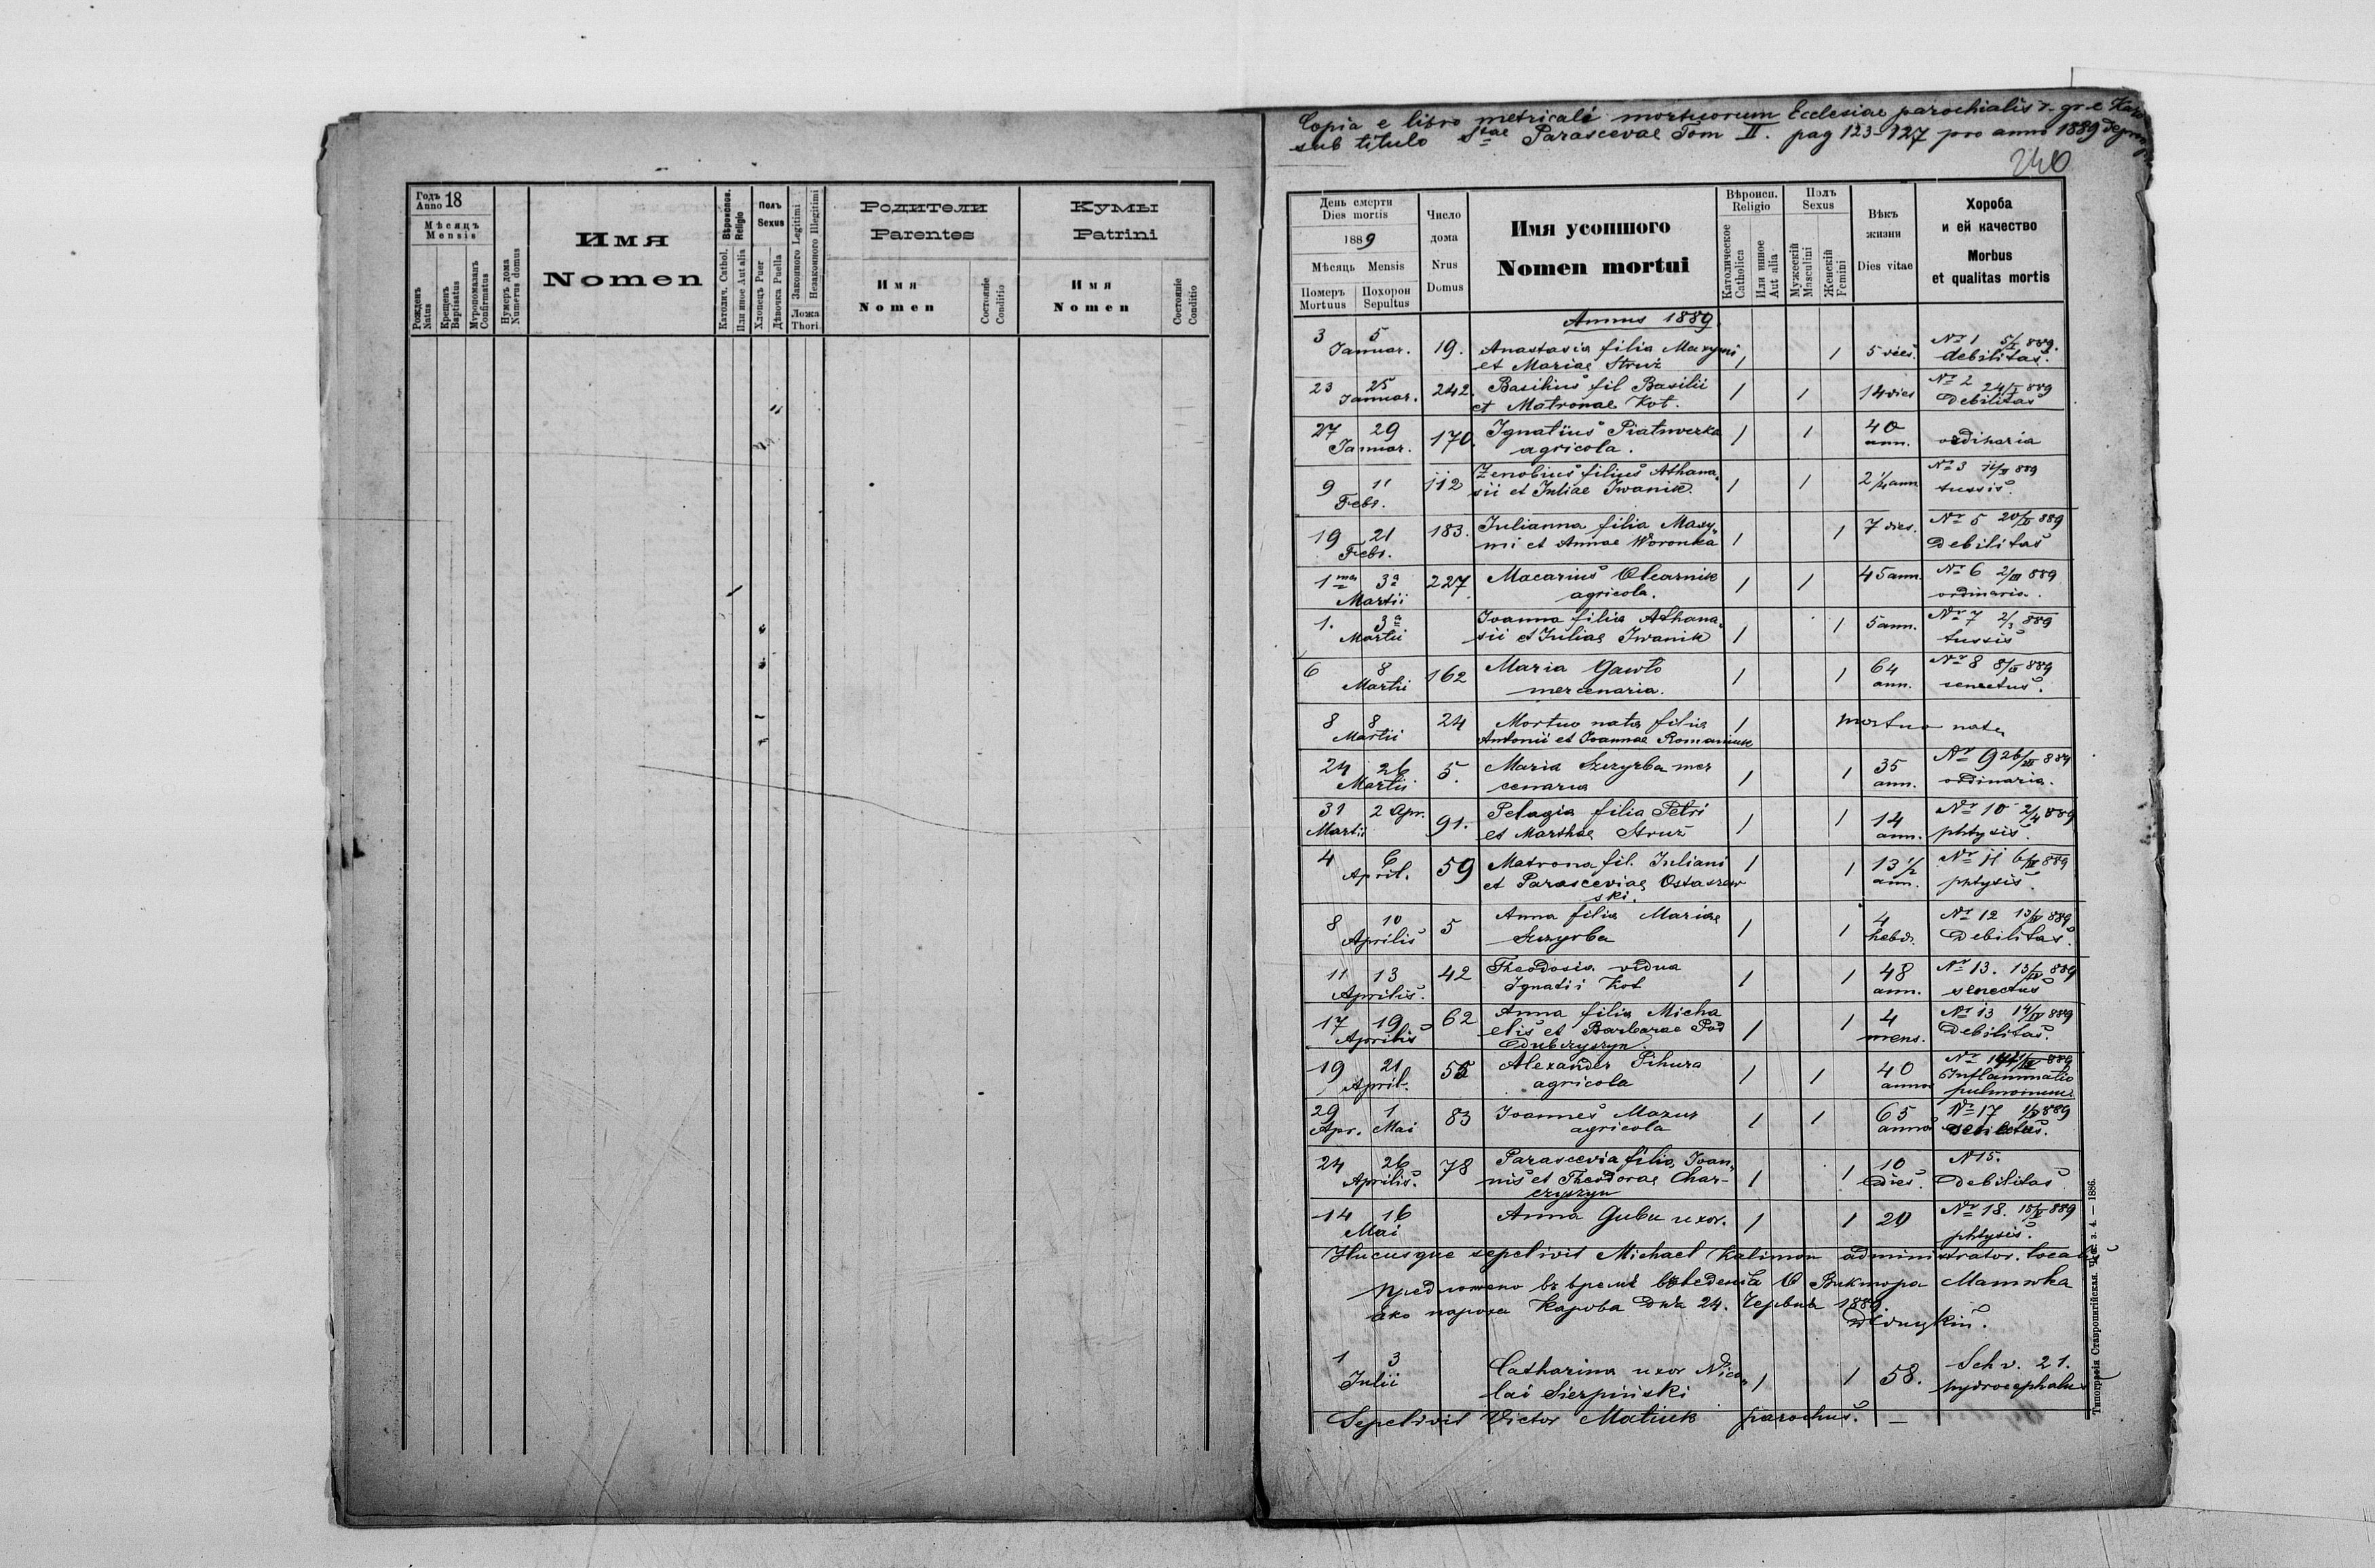 Годъ Anno 18
Мѣсяцъ Mensis
Рожденъ Natus
Крещенъ Baptisatus
Мѵропомазанъ Confirmatus
Нумеръ дома Numerus domus
Имя
Nomen
Вѣроиспов. Religio
Католич. Cathol.
Или иное Aut alia
Полъ Sexus
Хлопецъ Puer
Дѣвочка Puella
Законного Legitimi
Незаконного Illegitimi
Ложа Thori
Родители
Parentes
Имя
Nomen
Состояніе Conditio
Кумы
Patrini
Имя
Nomen
Состояніе Conditio
Copia e libro metricali mortuorum Ecclesiae parochialis r. gr. c.
sub titulo Stae Parascevae Tom II. pag 123-127 pro anno 1889
240
День смерти Dies mortis
1889
Мѣсяць Mensis
Померъ Mortuus
Похорон Sepultus
Число дома Nrus Domus
Имя усопшого
Nomen mortui
Вѣроисп. Religio
Католическое Catholica
Или инное Aut alia
Полъ Sexus
Мужескій Masculini
Женскій Femini
Вѣкъ жизни Dies vitae
Хороба и ей качество
Morbus et qualitas mortis
Annus 1889.
3 5 Januar. 19. Anastasia filia Maxymi 1 1 5 dies. Nr 1 5/I 889.
et Mariae Struż debilitas.
23 25 Januar. 242. Basilius fil Basilii 1 1 14 dies Nr 2 24/I 889
et Matronae Kot. Debilitas
27 29 Januar. 170. Ignatius Piatnoczka 1 1 40 ann. ordinaria
agricola.
9 11 Febr. 112 Zenobius filius Athana- 1 1 2 1/4 ann Nr 3 11/II 889
sii et Juliae Iwanik. tussis.
19 21 Febr. 183. Julianna filia Maxy- 1 1 7 dies. Nr 5 20/II 889
mi et Annae Woronka Debilitas
1ma 3a Martii 227 Macarius Olearnik 1 1 45 ann. Nr 6 2/III 889
agricola. ordinaria.
1. 3a Martii Joanna filia Athana- 1 1 5 ann. Nr 7 2/3 889
sii et Juliae Iwanik tussis
6 8 Martii 162 Maria Gawło 1 1 64 ann. Nr 8 8/III 889
mercenaria. senectus.
8 8 Martii 24 Mortuo nata filia 1 mortuo nata
Antonii et Joannae Romaniuk
24 26 Martii 5. Maria Szczyrba mer 1 1 35 ann. Nr 9 26/III 889
cenaria ordinaria.
31 Martii 2 Apr. 91. Pelagia filia Petri 1 1 14 ann. Nr 10 2/4 889
et Marthae Struż phtysis.
4 6 April. 59 Matrona fil. Juliani 1 1 13 1/2 ann. Nr 11 6/IV 889
et Parasceviae Ostaszew phtysis.
ski.
8 10 Aprilis 5 Anna filia Mariae 1 1 4 hebd. Nr 12 13/IV 889
Szczyrba Debilitas.
11 13 Aprilis. 42 Theodosia vidua 1 1 48 ann. Nr 13. 13/IV 889
Ignatii Kot senectus
17 19 Aprilis 62 Anna filia Micha 1 1 4 mens. Nr 13 14/IV 889
elis et Barbarae Pod Debilitas.
dubczyszyn.
19 21 April. 55 Alexander Pihura 1 1 40 annos Nr
agricola Inflammatio
pulmonum
29 Apr. 1 Mai 83 Joannes Mazur 1 1 65 annos Nr 17 1/V 889
agricola
24 26 Aprilis. 78 Parascevia filia Joan- 1 1 10 dies. N 15.
nis et Theodorae Char- Debilitas
czyszyn
14 16 Mai Anna Guba uxor. 1 1 20 Nr 18. 15/V 889
phtysis.
Hucusque sepelivit Michael Kalimon administrator. localis
Предложено въ время введенія О Виктора Матюка
яко пароха Карова дня 24. Червня 1889.
1 3 Julii Catharina uxor Nico- 1 1 58. Sch v. 21.
lai Sierpiński hydrocephalus
Sepelivit Victor Matiuk parochus. —
Типографія Ставропигійская. Ч. 3. 4. — 1886.